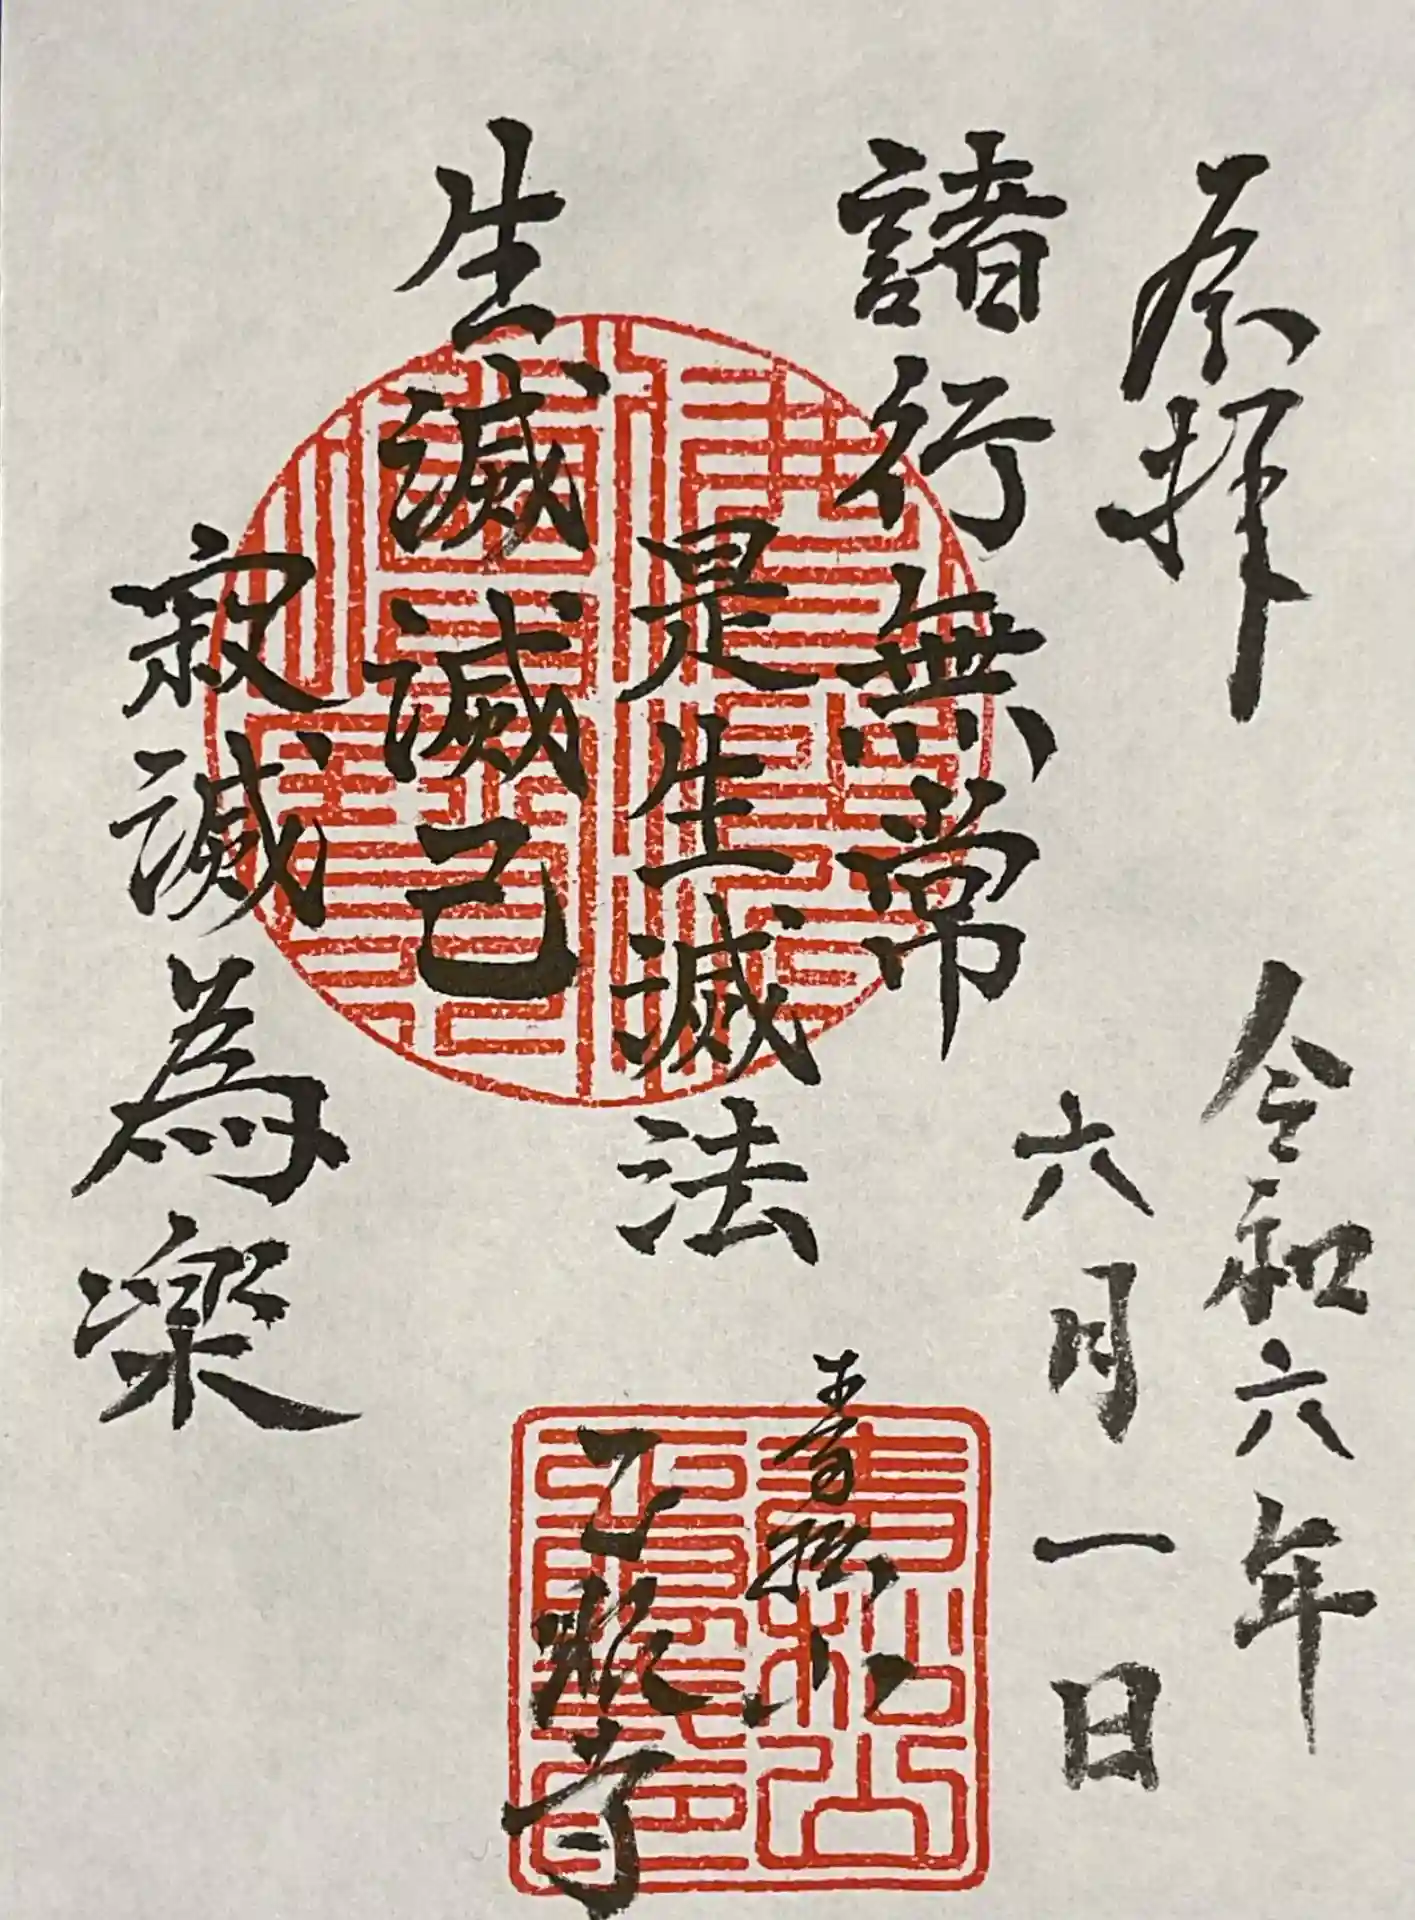 奉拝
令和六年
六月一日
諸行無常
是生滅法
生滅滅已
寂滅為楽
青松山
正眼寺